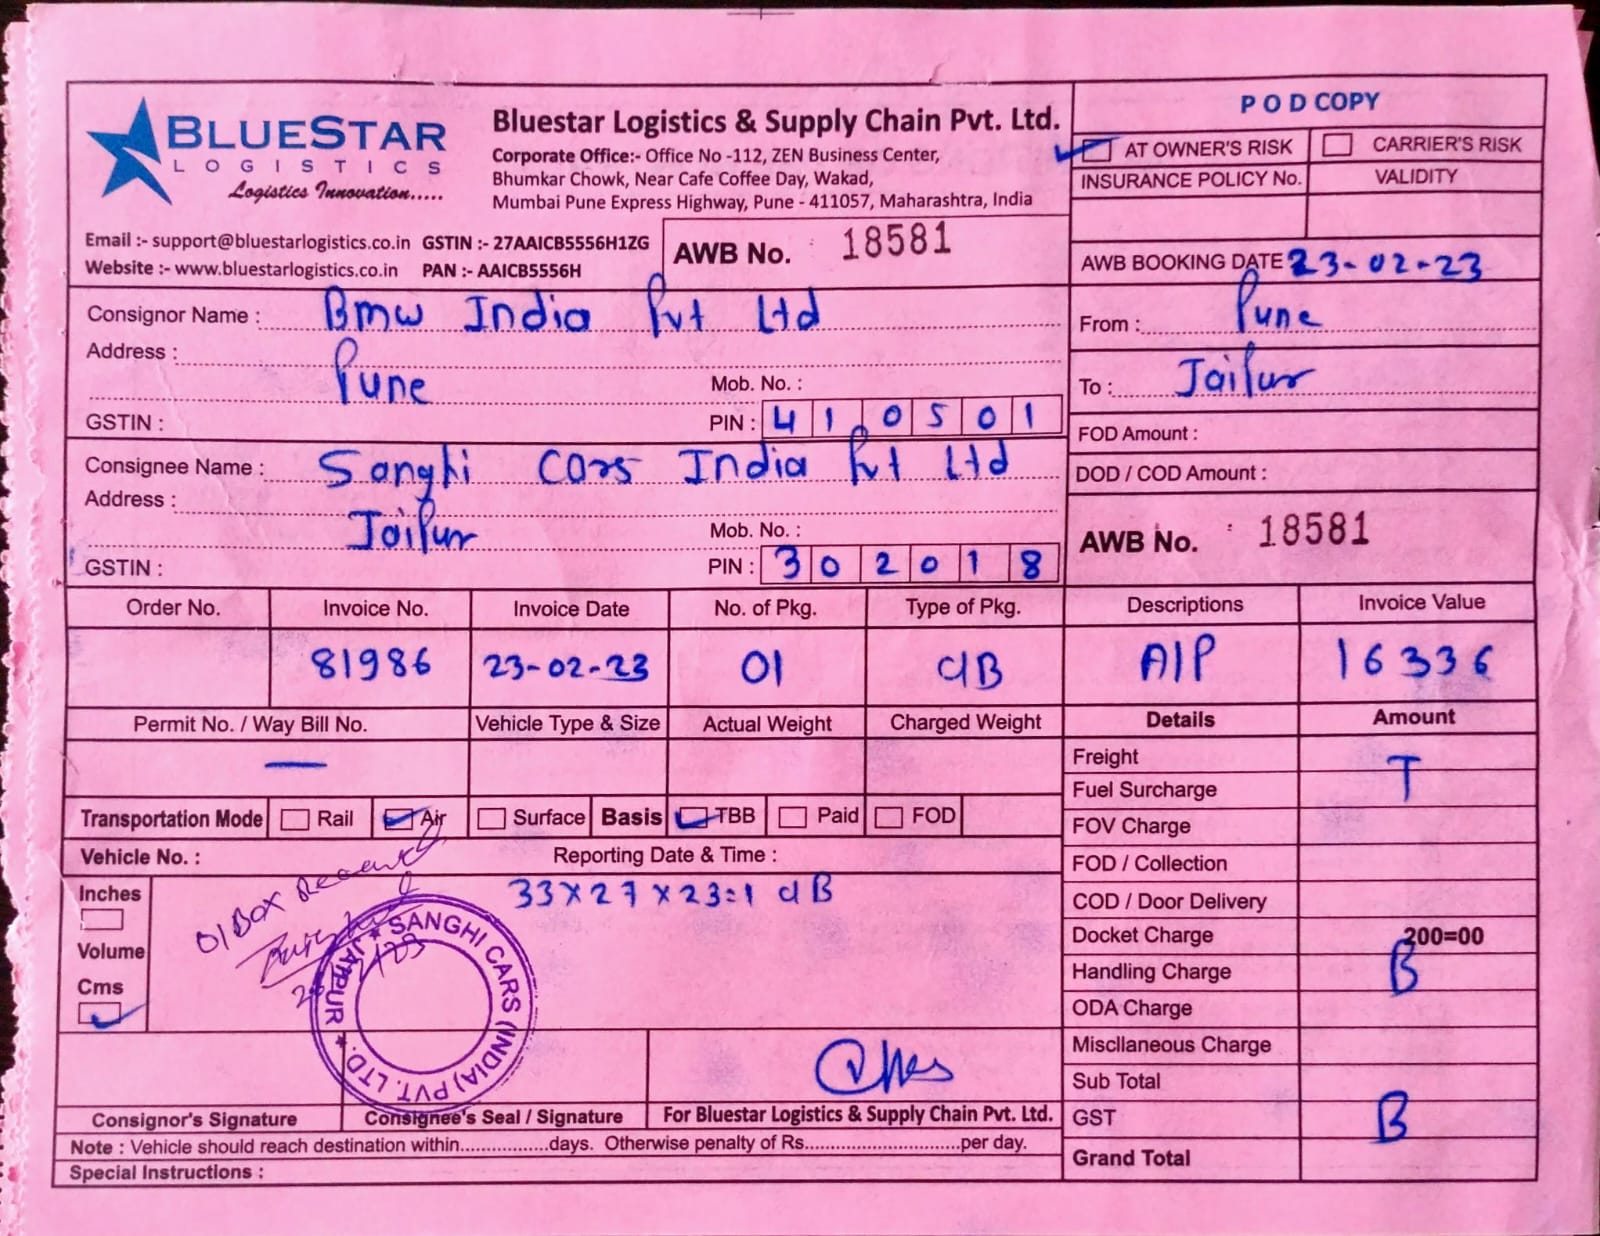 BLUESTAR
LOGISTICS
Logistics Innovation.....
Bluestar Logistics & Supply Chain Pvt. Ltd.
Corporate Office:- Office No -112, ZEN Business Center,
Bhumkar Chowk, Near Cafe Coffee Day, Wakad,
Mumbai Pune Express Highway, Pune - 411057, Maharashtra, India
Email :- support@bluestarlogistics.co.in GSTIN :- 27AAICB5556H1ZG
Website :- www.bluestarlogistics.co.in PAN :- AAICB5556H
AWB No. 18581
POD COPY
AT OWNER'S RISK CARRIER'S RISK
INSURANCE POLICY No. VALIDITY
AWB BOOKING DATE 23-02-23
Consignor Name : Bmw India Pvt Ltd
Address :
Pune Mob. No. :
GSTIN : PIN : 410501
From : Pune
To : Jaipur
FOD Amount :
DOD / COD Amount :
Consignee Name : Sanghi Cars India Pvt Ltd
Address :
Jaipur Mob. No. :
GSTIN : PIN : 302018
AWB No. 18581
Order No. Invoice No. Invoice Date No. of Pkg. Type of Pkg. Descriptions Invoice Value
81986 23-02-23 01 CIB A/P 16336
Permit No. / Way Bill No. Vehicle Type & Size Actual Weight Charged Weight Details Amount
—
Freight
T
Fuel Surcharge
FOV Charge
FOD / Collection
COD / Door Delivery
Docket Charge 200=00
Handling Charge B
ODA Charge
Miscllaneous Charge
Sub Total
GST B
Grand Total
Transportation Mode Rail Air Surface Basis TBB Paid FOD
Vehicle No. : Reporting Date & Time :
Inches
Volume
Cms
33x27x23=1 CIB
01 Box Received
SANGHI CARS (INDIA) PVT. LTD. ★ JAIPUR ★
Consignor's Signature Consignee's Seal / Signature For Bluestar Logistics & Supply Chain Pvt. Ltd.
Note : Vehicle should reach destination within...............days. Otherwise penalty of Rs...........................per day.
Special Instructions :